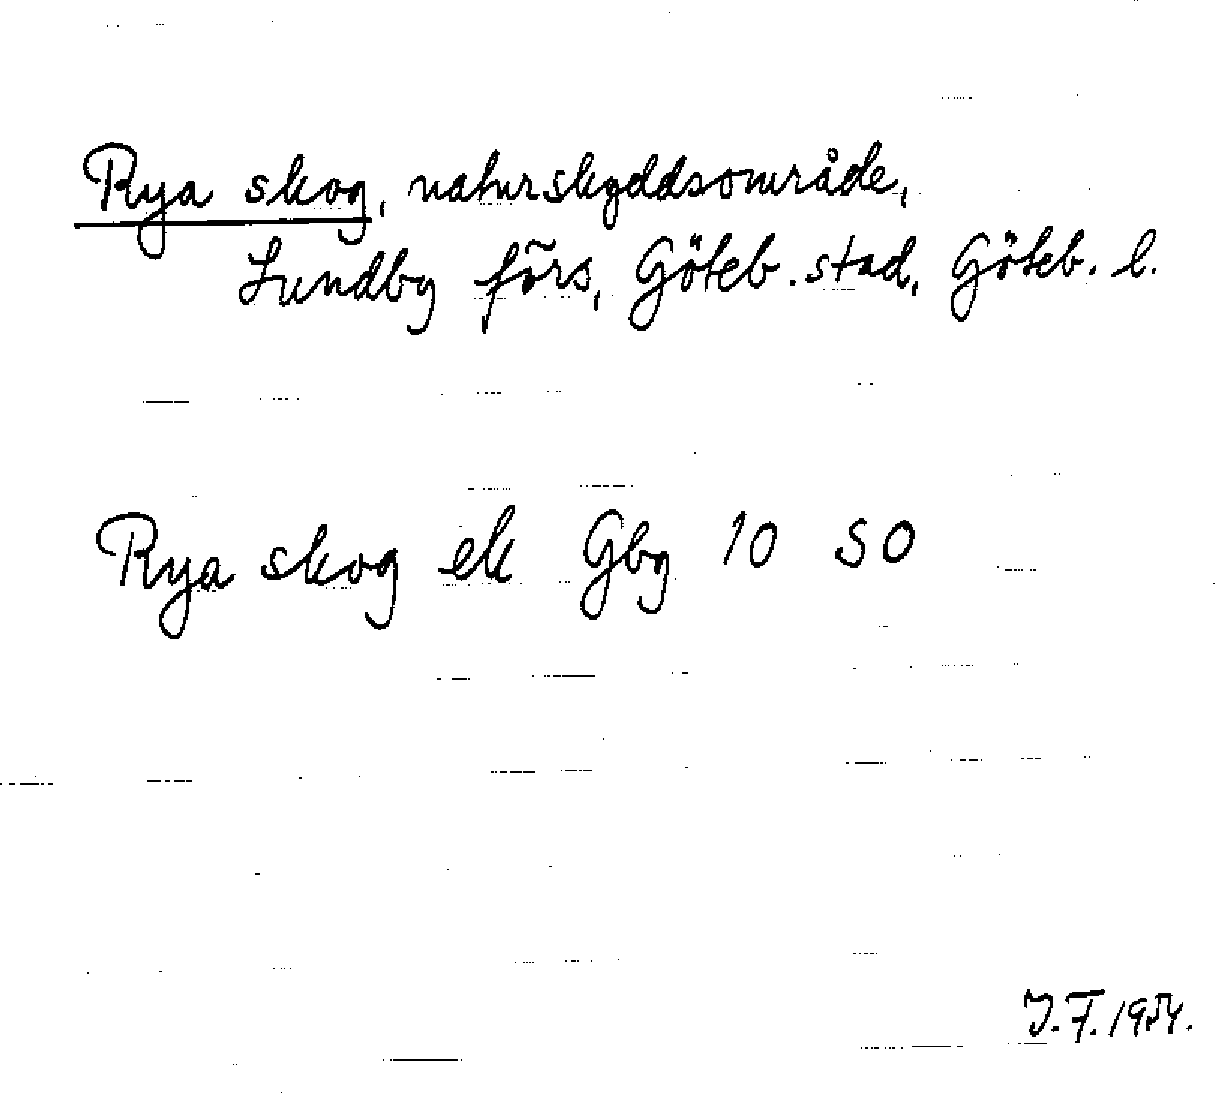 Rya skog, naturskyddsområde,
Lundby förs, Göteb. stad, Göteb. l.
Rya skog ek Gbg 10 SO
J.F. 1954.